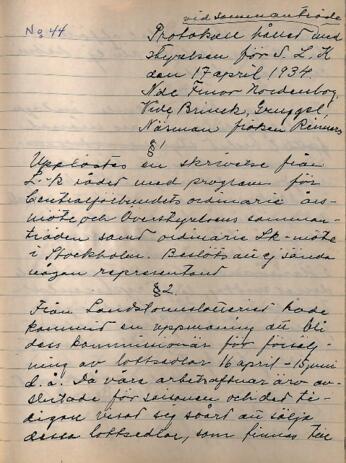 No 44
vid sammanträde
Protokoll hållet med
styrelsen för S. L. K
den 17 april 1934.
Nde Fruar Nordenbog,
Wide, Brinck, Gruggel,
Närman fröken Rinners
§ 1
Upplästes en skrivelse från
L-k rådet med program för
Centralförbundets ordinarie om-
möte och Överstyrelsens samman-
träden samt ordinarie Lk-möte
i Stockholm. Beslöts att ej sända
någon representant
§ 2.
Från Landstormslotteriet hade
kommit en uppmaning att bli
dess kommissionär för försälj-
ning av lottsedlar 16 april - 15 juni
d.å. Då våra arbetsaftnar äro av-
slutade för säsongen och det ti-
digare visat sig svårt att sälja
dessa lottsedlar, som finnas till